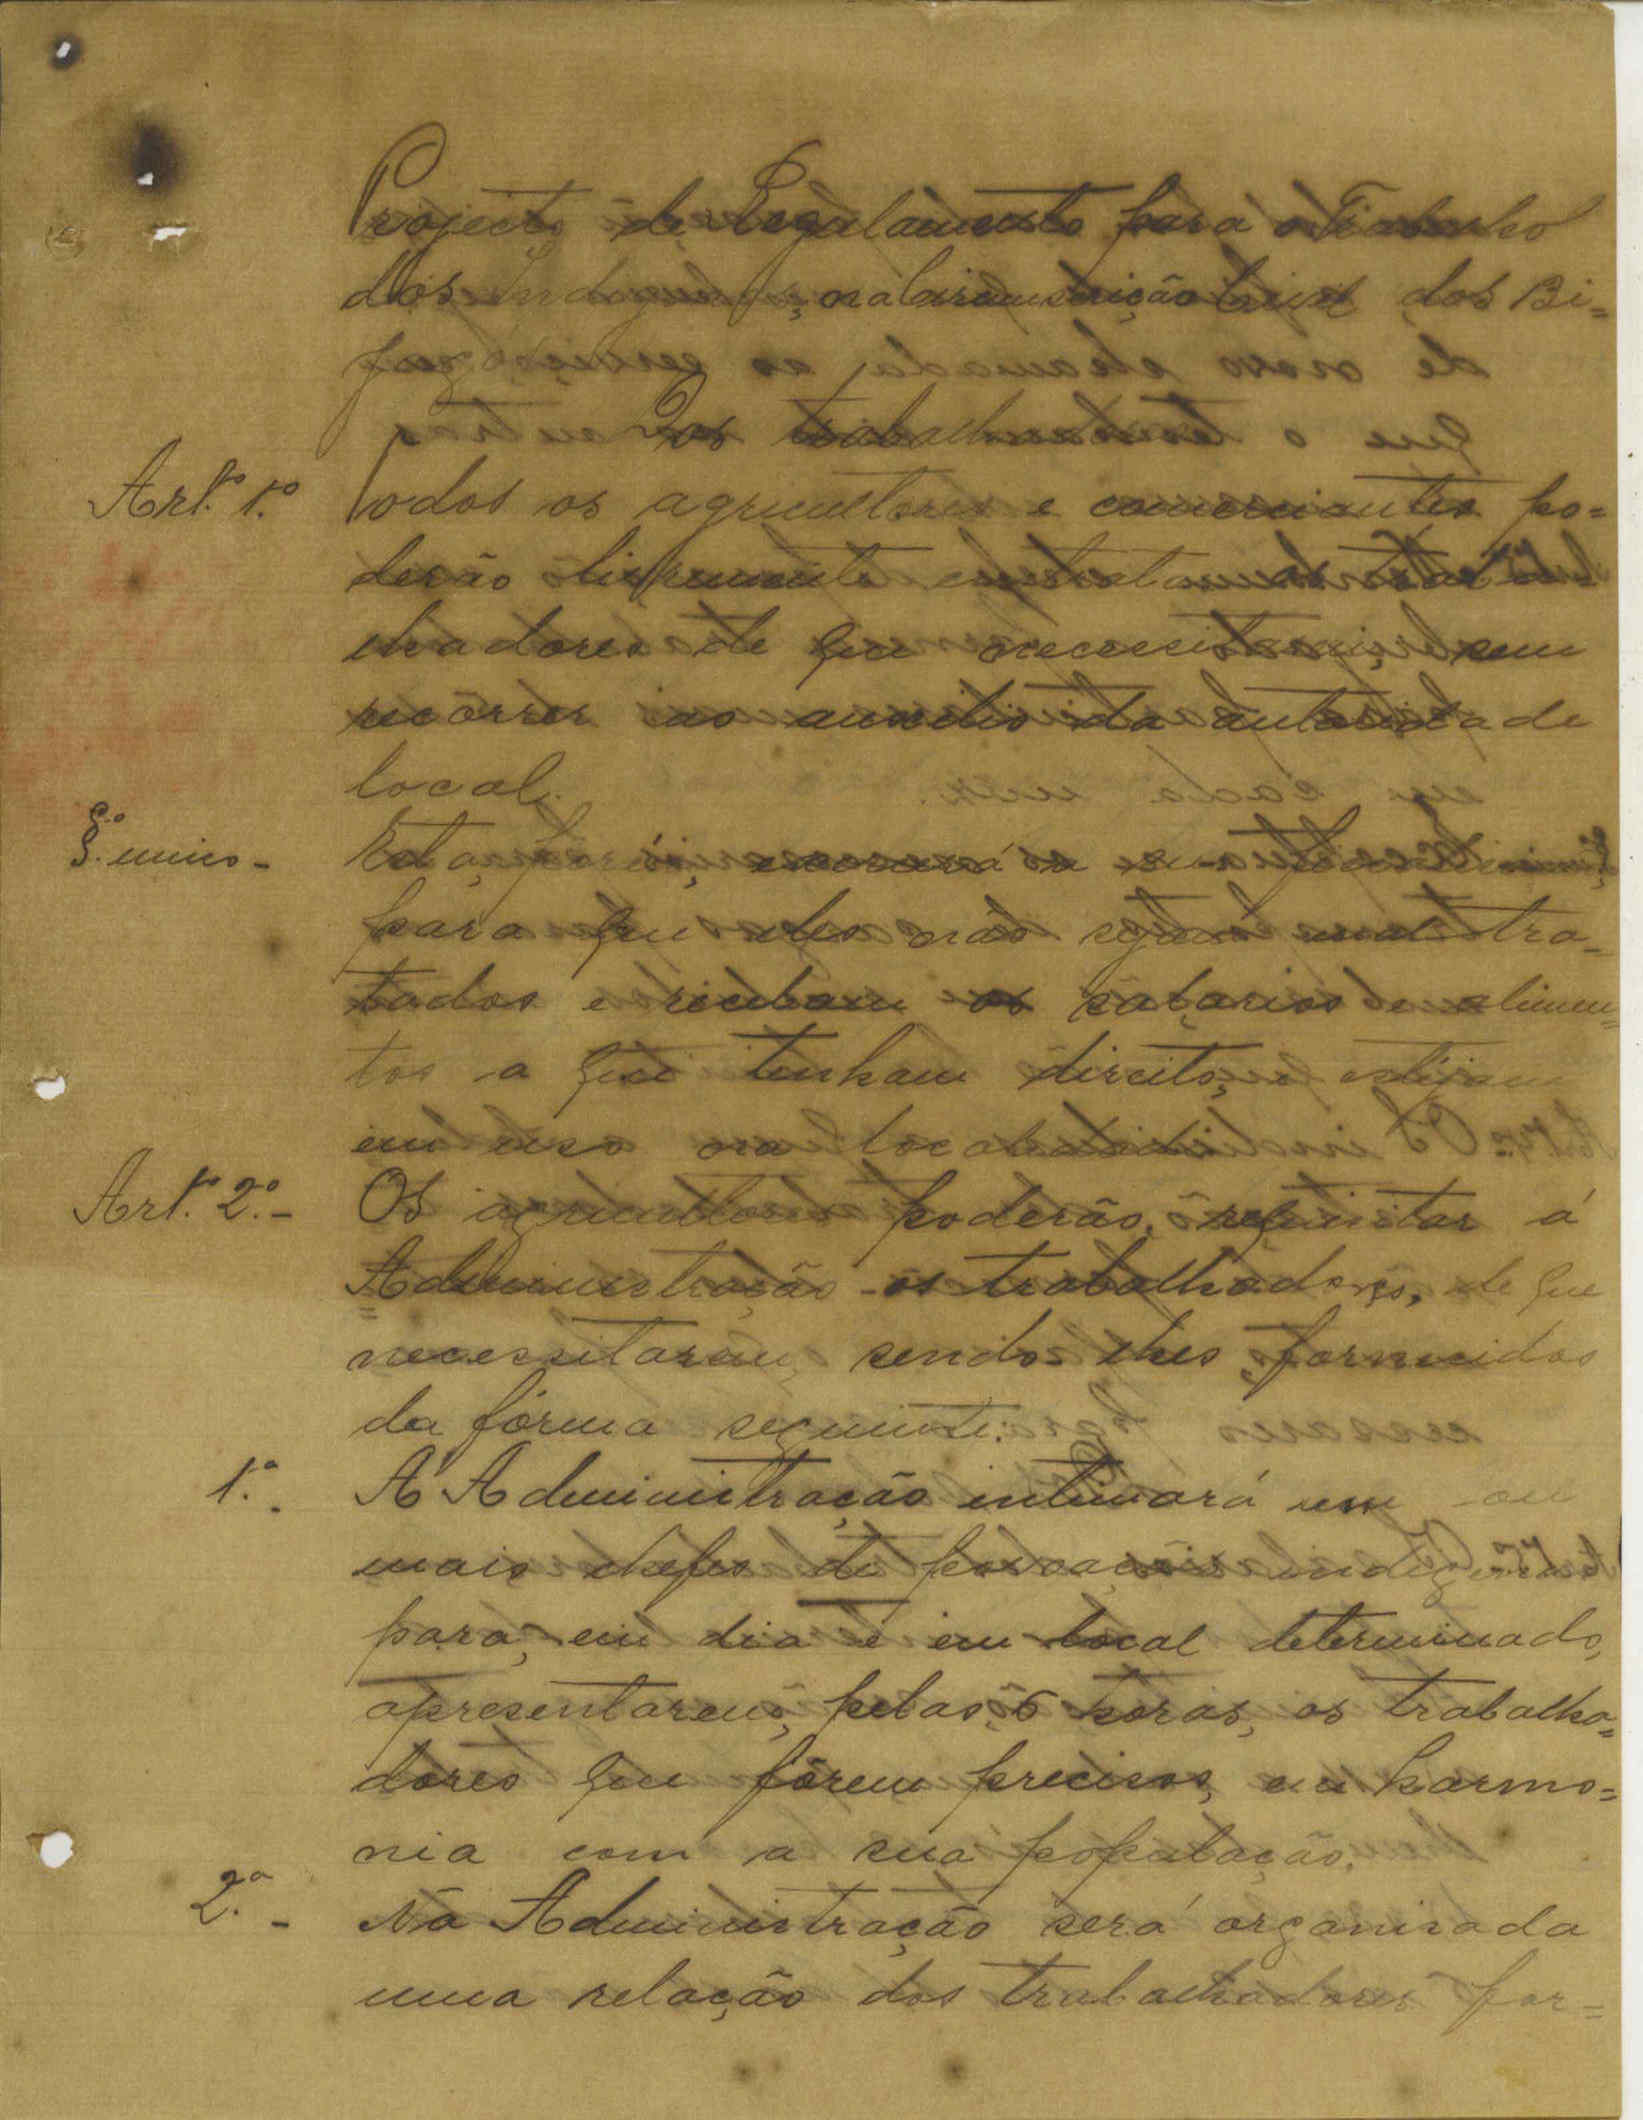 Projecto de Regulamento para o Trabalho
dos Indigenas, na Circunscrição Civil dos Bi=
jagoz
Dos trabalhos
Art.º 1.º Todos os agricultores e comerciantes po=
derão livremente contratar os traba
lhadores de que necessitarem, sem
recôrrer ao auxilio da autoridade
local.
§.º unico - Esta, porém, exercerá a sua
para que eles não sejam mal tra=
tados e recebam os salarios e alimen=
tos a que tenham direito, e estejam
em uso na localidade.
Art.º 2.º - Os agricultores poderão, requisitar á
Administração os trabalhadores, de que
necessitarem, sendo-lhes, fornecidos
da fórma seguinte:
1.º - A Administração intimará um ou
mais chefes de povoações indigenas
para, em dia e em local determinado,
apresentarem, pelas 6 horas, os trabalha=
dores que fôrem precisos, em harmo=
nia com a sua população.
2.º - Na Administração será organisada
uma relação dos trabalhadores for=